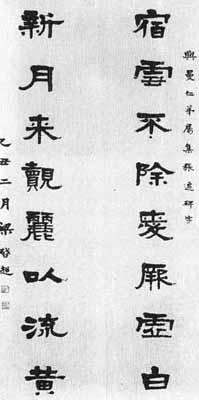 曼仁弟屬集張遷碑字
宿雲不除愛厥虛白
新月来覿麗以流黄
乙丑二月梁啓超